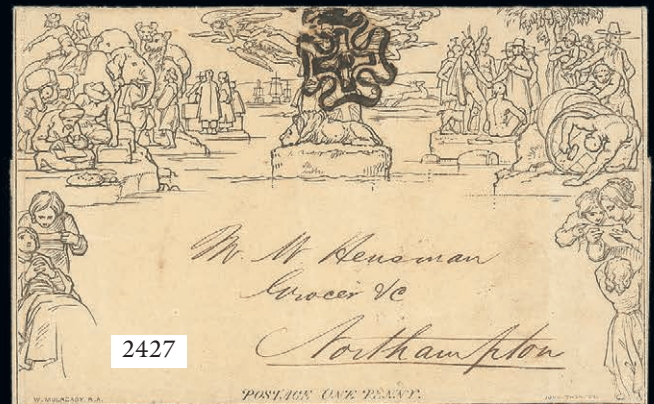 Mr. W Hensman
Grocer &c
Northampton
2427
W. MULREADY. R.A.
POSTAGE ONE PENNY.
JOHN THOMPSON